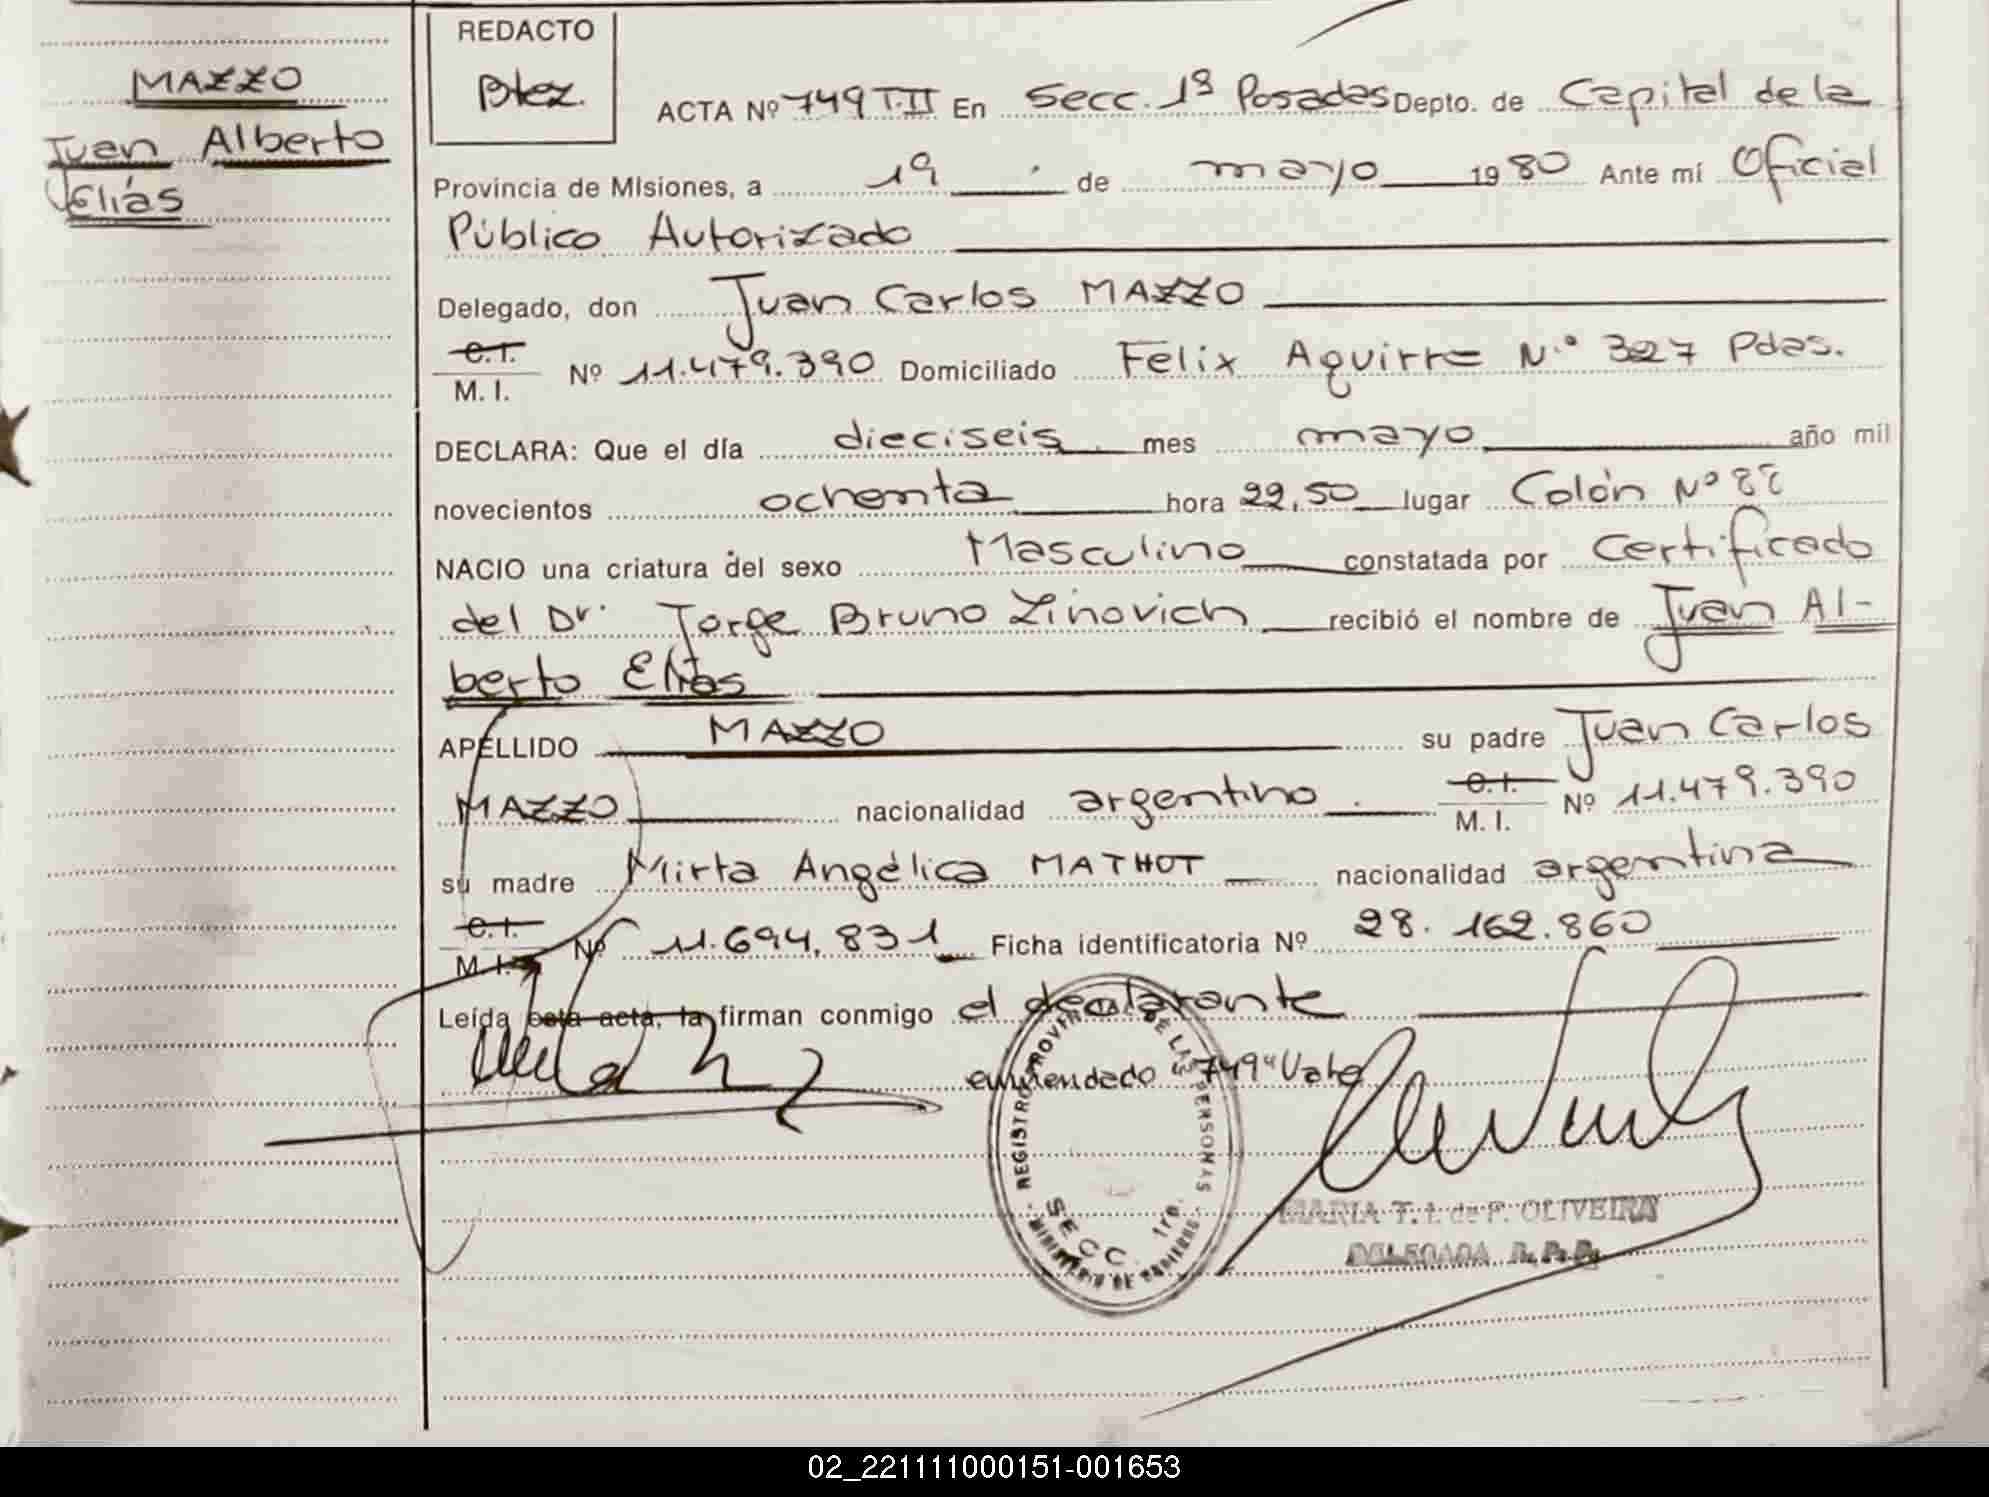 MAZZO
Juan Alberto
Elías
REDACTO
Btez.
ACTA Nº 749 T.II En Secc. 1ª Posadas Depto. de Capital de la
Provincia de Misiones, a 19 de mayo 1980 Ante mí Oficial
Público Autorizado
Delegado, don Juan Carlos MAZZO
C.I.
M. I. Nº 11.479.390 Domiciliado Felix Aguirre N.º 327 Pdas.
DECLARA: Que el día dieciseis mes mayo año mil
novecientos ochenta hora 22,50 lugar Colón Nº 88
NACIO una criatura del sexo Masculino constatada por Certificado
del Dr. Jorge Bruno Zinovich recibió el nombre de Juan Al-
berto Elías
APELLIDO MAZZO su padre Juan Carlos
MAZZO nacionalidad argentino C.I. M. I. Nº 11.479.390
su madre Mirta Angélica MATHOT nacionalidad argentina
C.I.
M. I. Nº 11.694.831 Ficha identificatoria Nº 28.162.860
Leída esta acta, la firman conmigo el declarante
enmendado "749" Vale
REGISTRO PROVINCIAL DE LAS PERSONAS
SECC. 1ra.
MINISTERIO DE GOBIERNO
MARIA T. I. de P. OLIVEIRA
DELEGADA R. P. P.
02_221111000151-001653